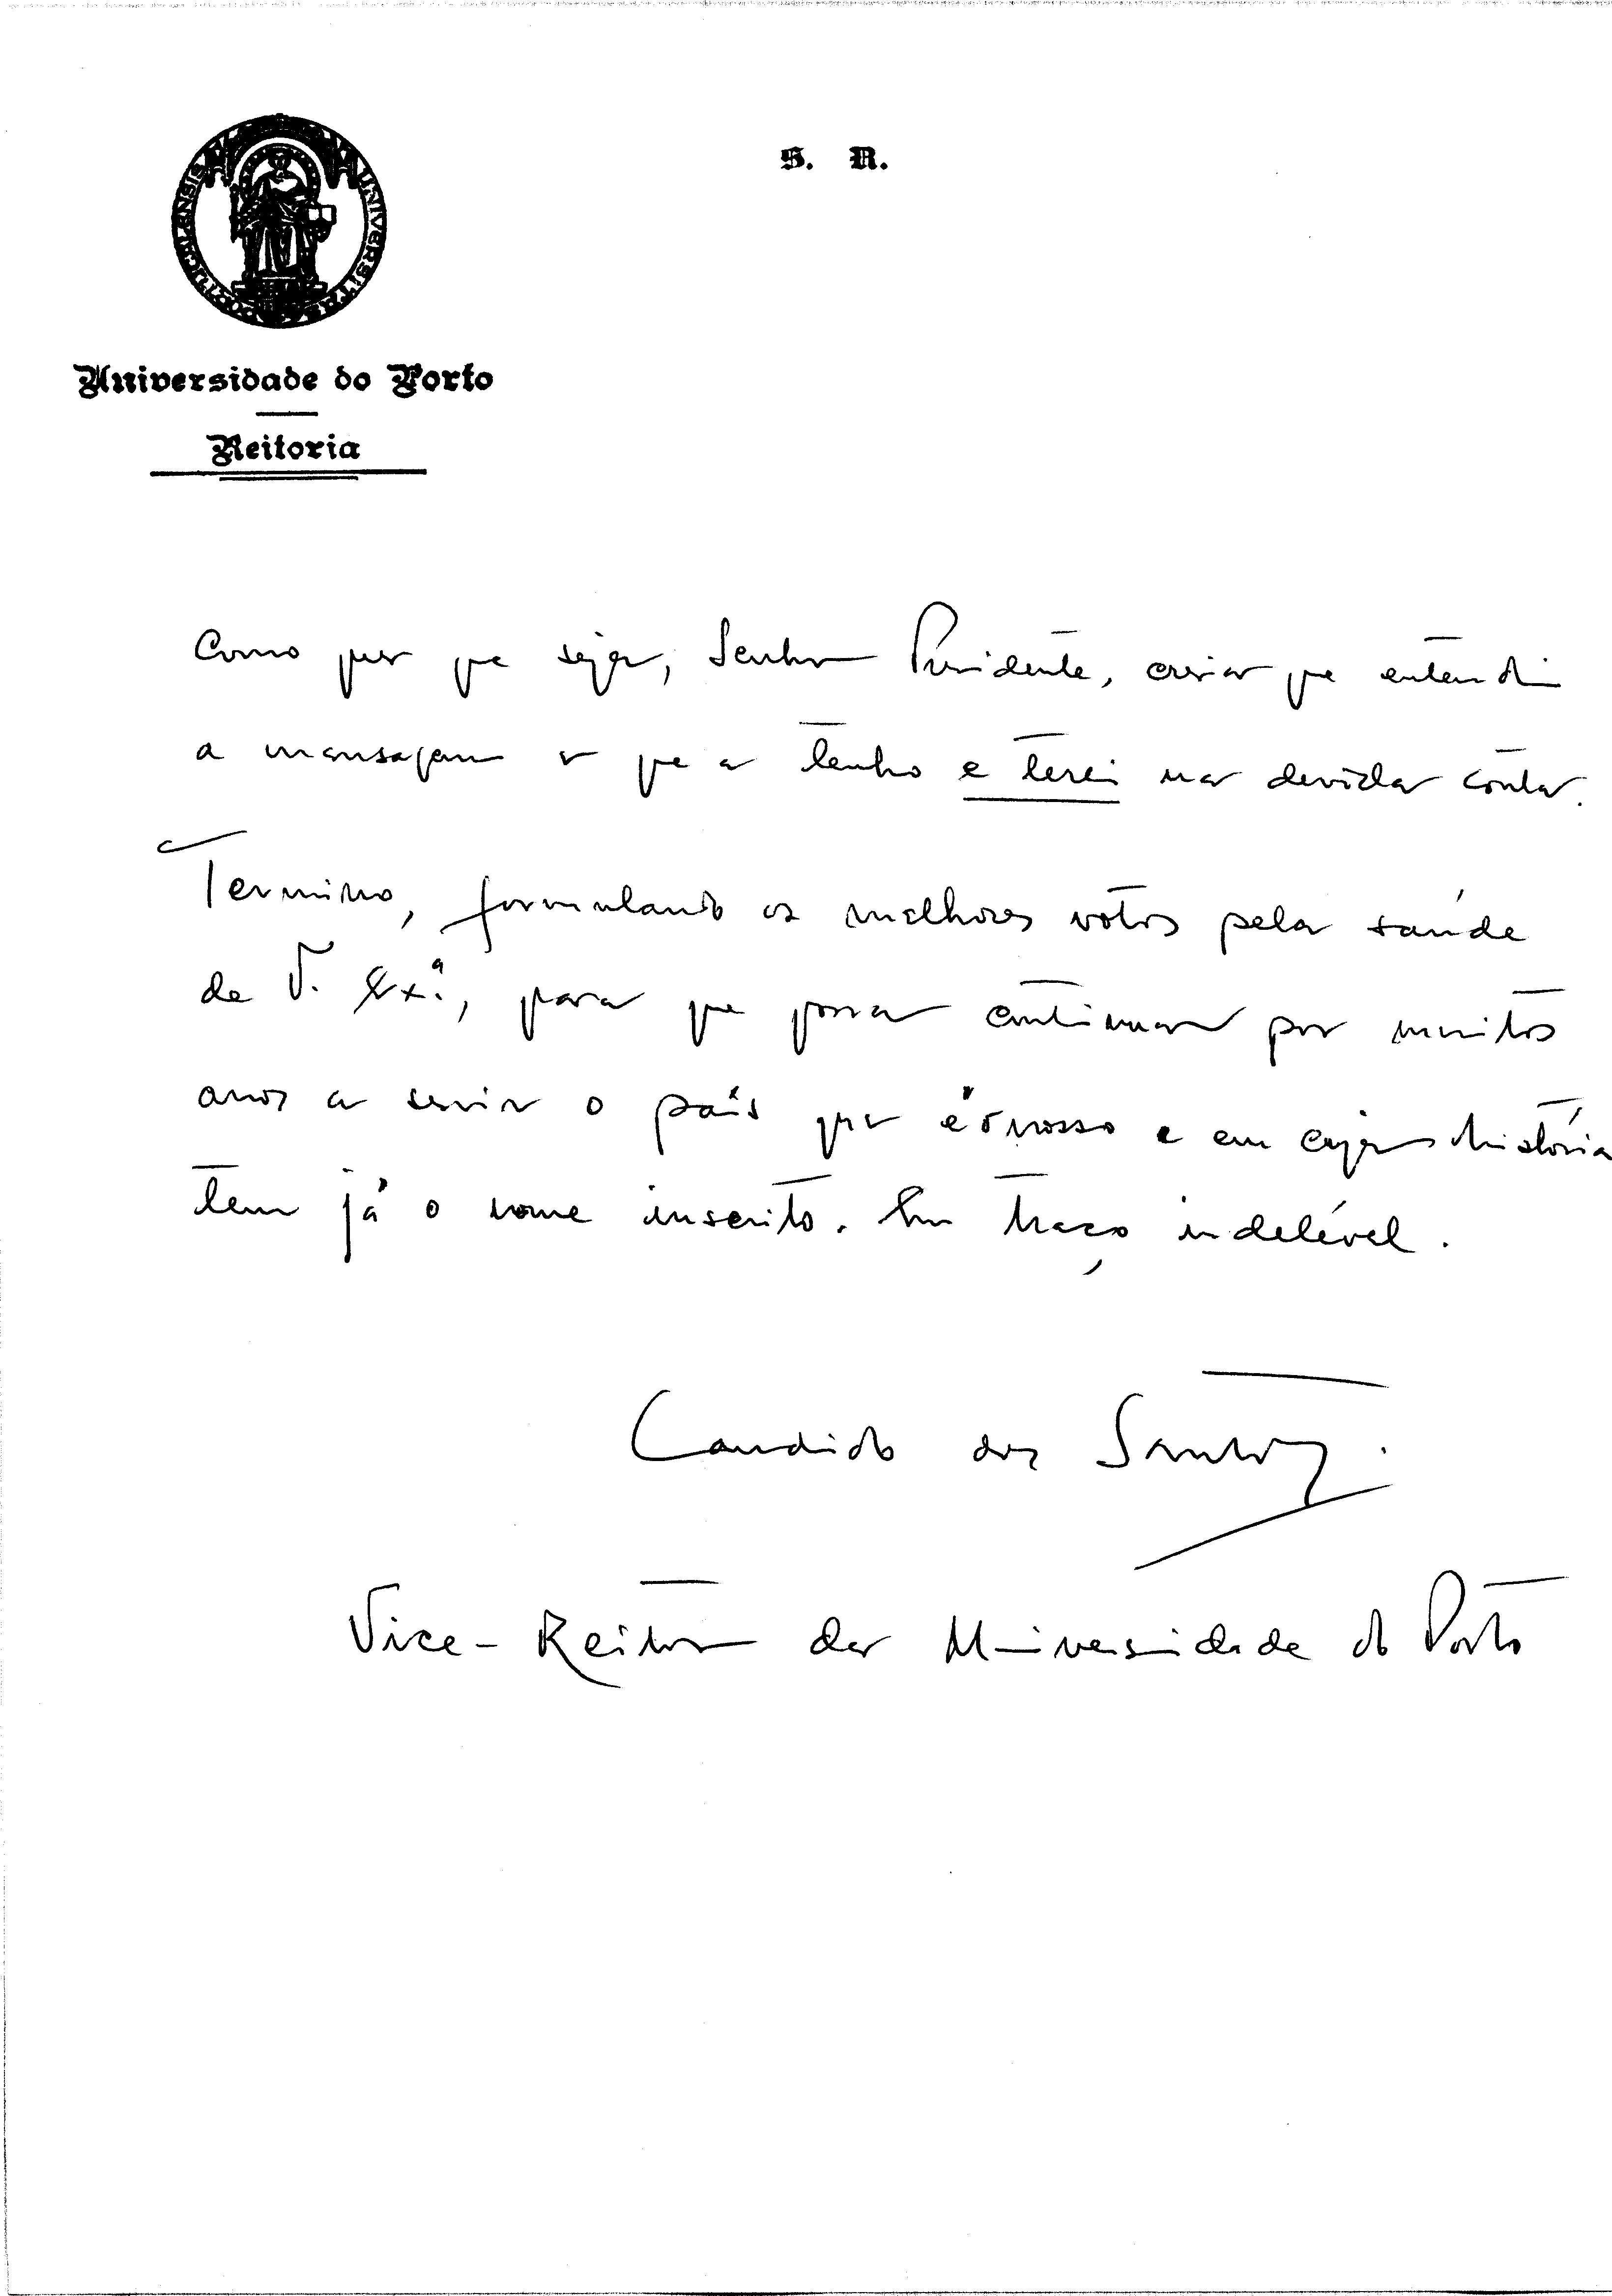 UNIVERSITAS PORTUCALENSIS
S. R.
Universidade do Porto
Reitoria
Como quer que seja, Senhor Presidente, creia que entendi
a mensagem e que a tenho e terei na devida conta.
Termino, formulando os melhores votos pela saúde
de V. Ex.ª, para que possa continuar por muitos
anos a servir o país que é o nosso e em cuja história
tem já o nome inscrito. Em traço indelével.
Candido dos Santos.
Vice-Reitor da Universidade do Porto